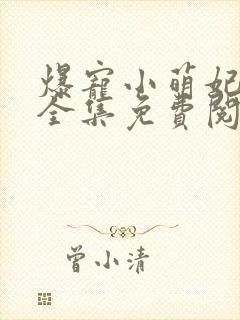 爆寵小萌妃
全集免費閱
曾小清